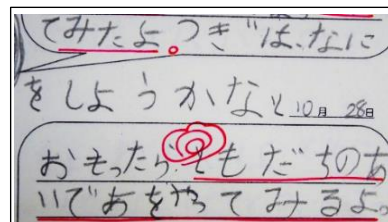 てみたよ。つぎは、なに
をしようかなと 10月 28日
おもったら、ともだちのあ
いであをやってみるよ。